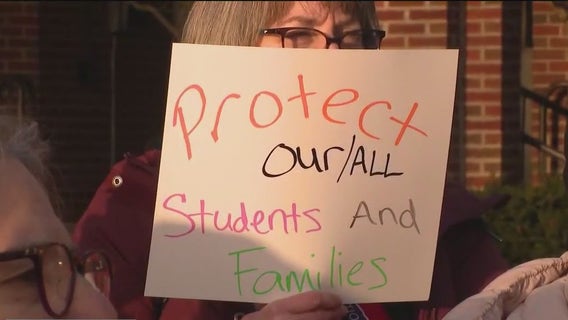 Protect
Our/ALL
Students And
Families